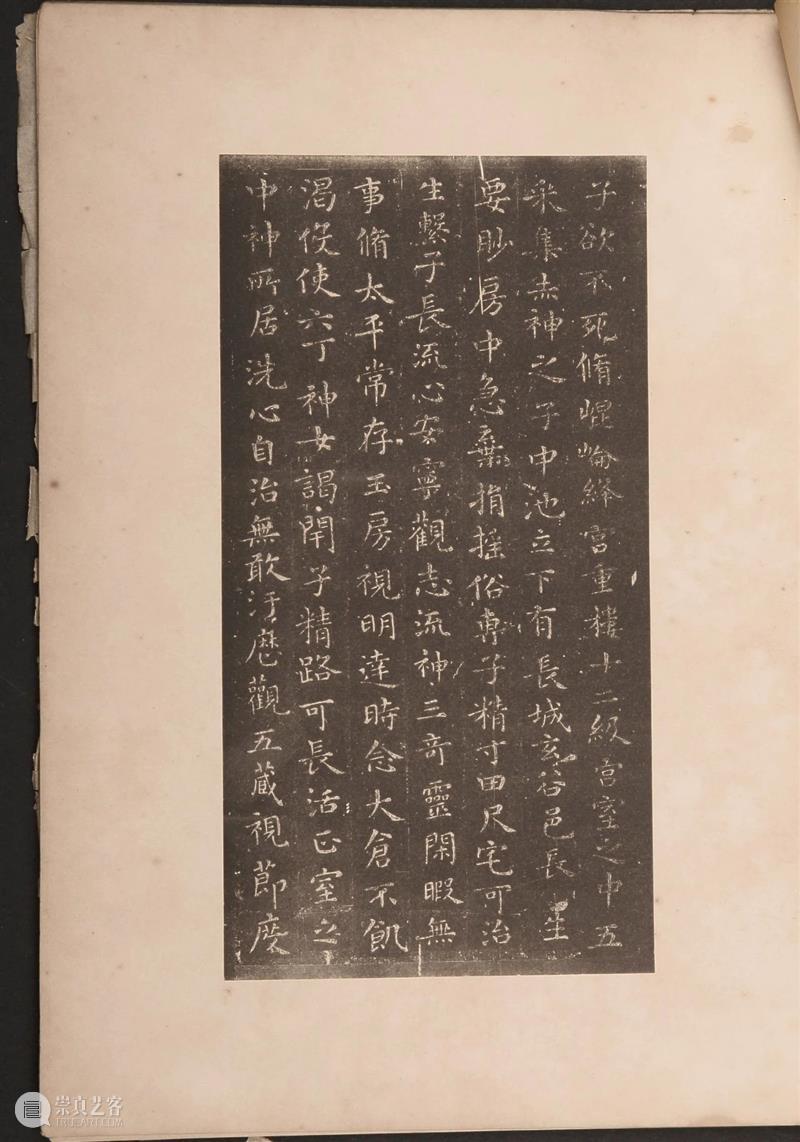 子欲不死脩崐崘絳宫重樓十二級宫室之中五
采集赤神之子中池立下有長城玄谷邑長生
要眇房中急棄捐摇俗專子精寸田尺宅可治
生繫子長流心安寧觀志流神三奇靈閑暇無
事脩太平常存玉房視明達時念大倉不飢
渴伇使六丁神女謁閇子精路可長活正室之
中神所居洗心自治無敢汙歷觀五藏視節度
崇真艺客
TRUEART.COM